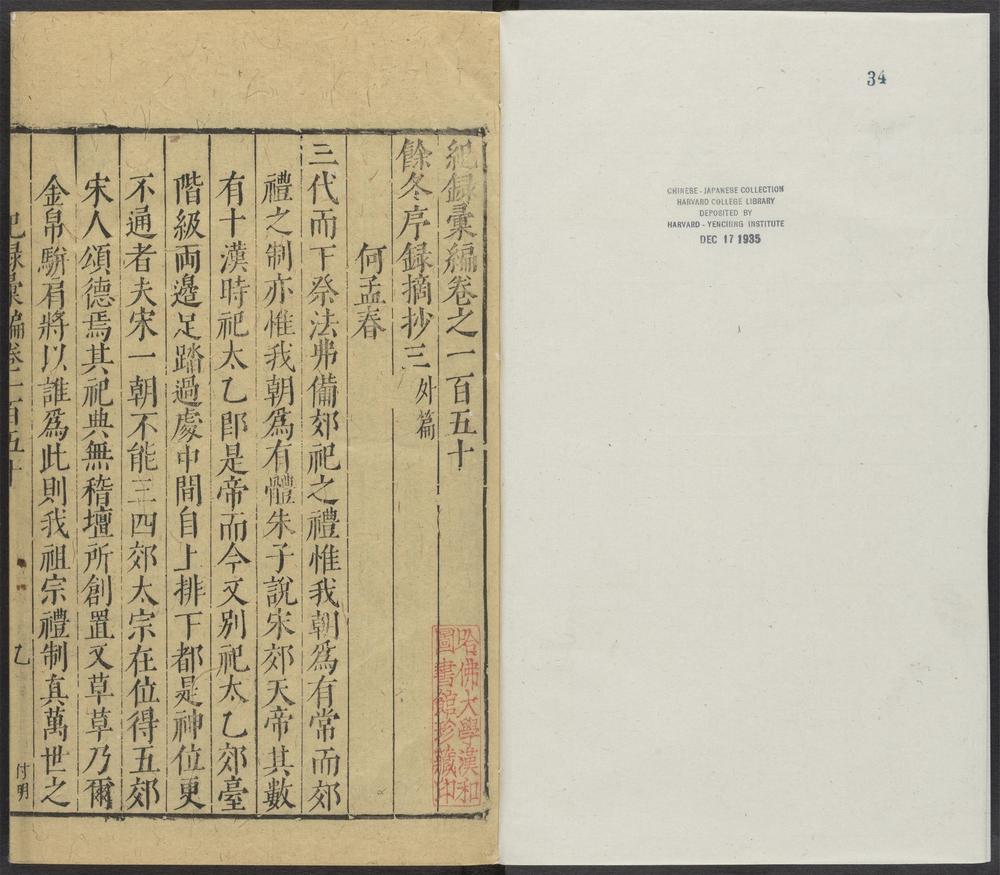 34
CHINESE - JAPANESE COLLECTION
HARVARD COLLEGE LIBRARY
DEPOSITED BY
HARVARD - YENCHING INSTITUTE
DEC 17 1935
紀録彙編卷之一百五十
餘冬序録摘抄三 外篇
何孟春
三代而下祭法弗備郊祀之禮惟我朝爲有常而郊
禮之制亦惟我朝爲有體朱子說宋郊天帝其數
有十漢時祀太乙即是帝而今又別祀太乙郊臺
階級両邊足踏過處中間自上排下都是神位更
不通者夫宋一朝不能三四郊太宗在位得五郊
宋人頌德焉其祀典無稽壇所創置又草草乃爾
金帛駢肩將以誰爲此則我祖宗禮制真萬世之
紀録彙編卷一百五十
乙
付明
哈佛大學漢和
圖書館珍藏印